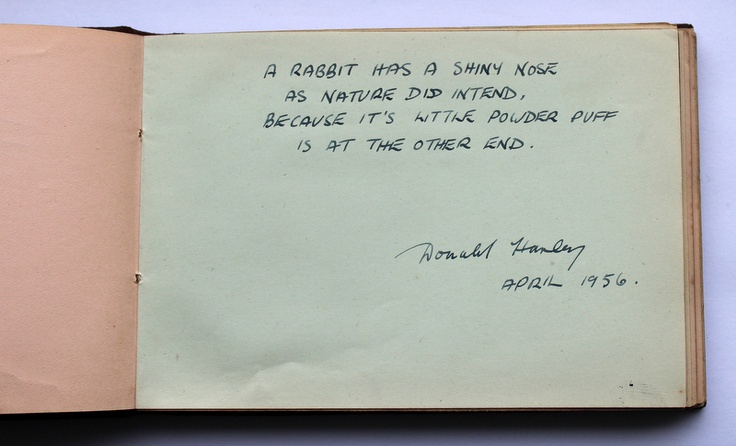 A RABBIT HAS A SHINY NOSE
AS NATURE DID INTEND,
BECAUSE IT'S LITTLE POWDER PUFF
IS AT THE OTHER END.
Donald Hanley
APRIL 1956.